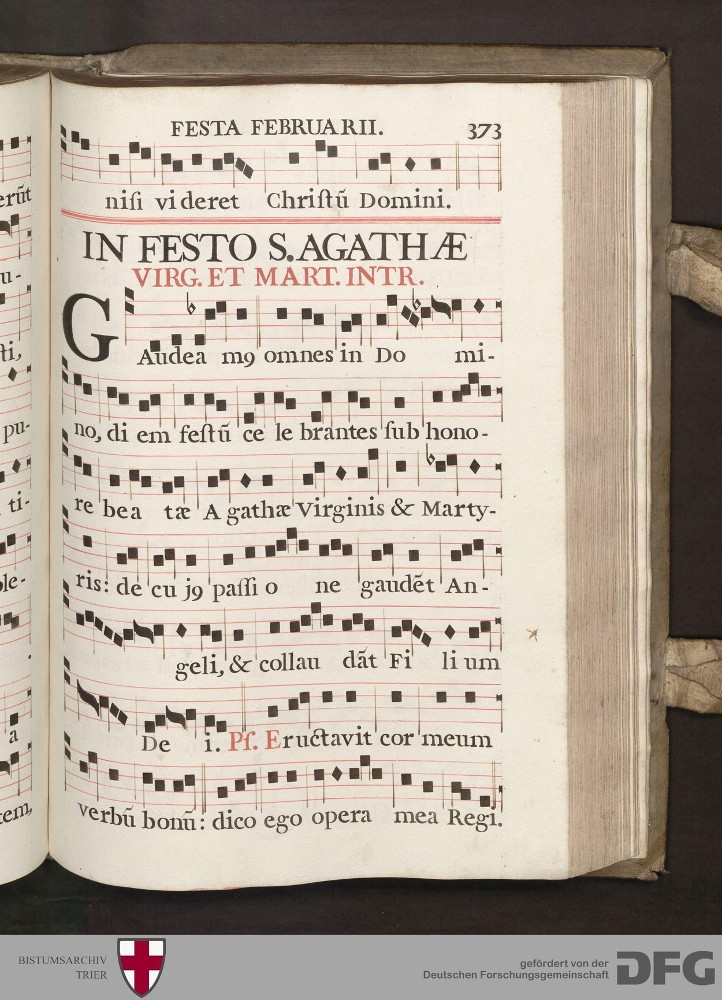 FESTA FEBRUARII. 373
niſi videret Chriſtū Domini.
IN FESTO S. AGATHÆ
VIRG. ET MART. INTR.
GAudea m9 omnes in Do mi-
no, di em feſtū ce le brantes ſub hono-
re bea tæ A gathæ Virginis & Marty-
ris: de cu j9 paſſi o ne gaudēt An-
geli, & collau dāt Fi li um
De i. Pſ. Eructavit cor meum
verbū bonū: dico ego opera mea Regi.
erūt
u-
ſti,
pu-
ti-
ple-
a
tem,
BISTUMSARCHIV
TRIER
gefördert von der
Deutschen Forschungsgemeinschaft
DFG